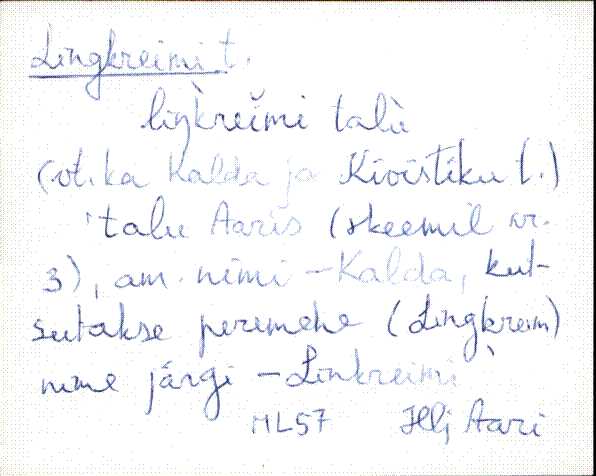 Lingkreimi t.
liŋ̀kreĭmi talù
(vt. ka Kalda ja Kivistiku t.)
talu Aaris (skeemil nr.
3), am. nimi - Kalda, kut-
sutakse peremehe (Lingkreim)
nime järgi - Linkreimi
ML57 Hlj Aari